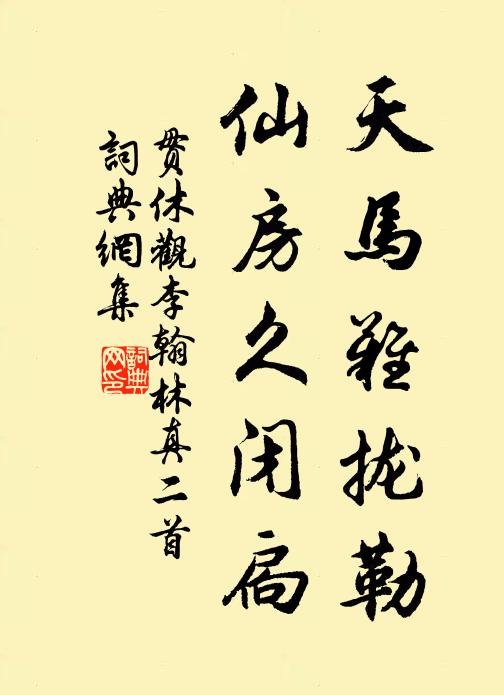 天馬難拢勒
仙房久闭扃
贯休觀李翰林真二首
詞典網集
詞典网印